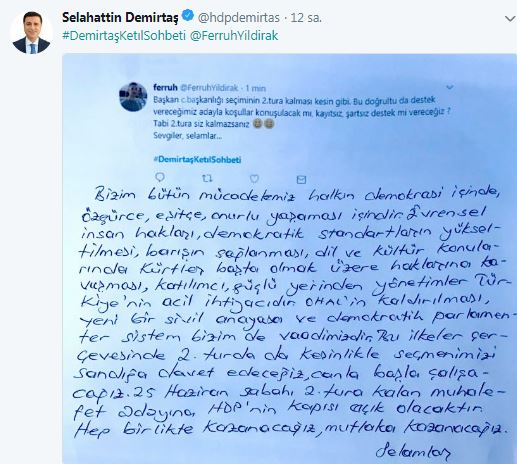 Selahattin Demirtaş @hdpdemirtas · 12 sa.
#DemirtaşKetılSohbeti @FerruhYildirak
ferruh @FerruhYildirak · 1 min
Başkan c.başkanlığı seçiminin 2.tura kalması kesin gibi. Bu doğrultu da destek
vereceğimiz adayla koşullar konuşulacak mı, kayıtsız, şartsız destek mi vereceğiz ?
Tabi 2.tura siz kalmazsanız 😀😀
Sevgiler, selamlar...
#DemirtaşKetılSohbeti
Bizim bütün mücadelemiz halkın demokrasi içinde,
özgürce, eşitçe, onurlu yaşaması içindir. Evrensel
insan hakları, demokratik standartların yüksel-
tilmesi, barışın sağlanması, dil ve kültür konula-
rında Kürtler başta olmak üzere haklarına ka-
vuşması, katılımcı, güçlü yerinden yönetimler Tür-
kiye'nin acil ihtiyacıdır. OHAL'in kaldırılması,
yeni bir sivil anayasa ve demokratik parlamen-
ter sistem bizim de vaadimizdir. Bu ilkeler çer-
çevesinde 2. turda da kesinlikle seçmenimizi
sandığa davet edeceğiz, canla başla çalışa-
cağız. 25 Haziran sabahı 2. tura kalan muhale-
fet adayına HDP'nin kapısı açık olacaktır.
Hep birlikte kazanacağız, mutlaka kazanacağız.
Selamlar